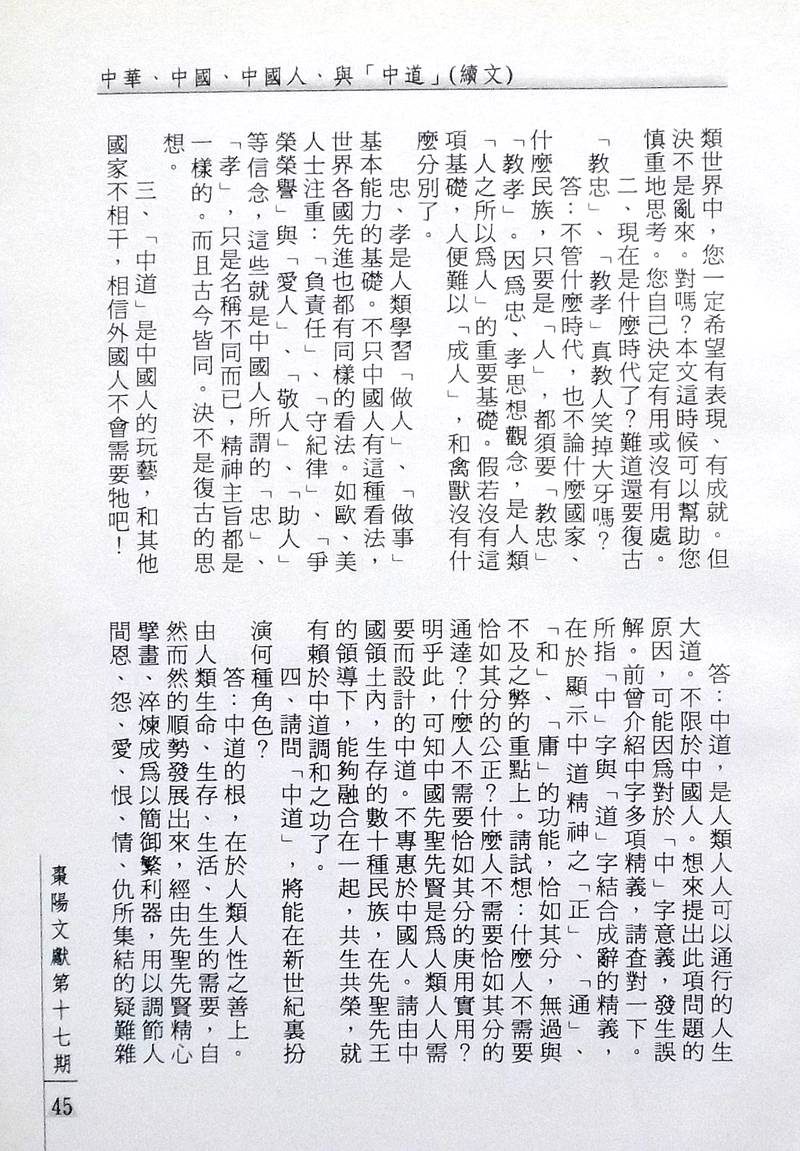 中華、中國、中國人、與「中道」(續文)
類世界中，您一定希望有表現、有成就。但
決不是亂來。對嗎？本文這時候可以幫助您
慎重地思考。您自己決定有用或沒有用處。
二、現在是什麼時代了？難道還要復古
「教忠」、「教孝」真教人笑掉大牙嗎？
答：不管什麼時代，也不論什麼國家、
什麼民族，只要是「人」，都須要「教忠」
「教孝」。因爲忠、孝思想觀念，是人類
「人之所以爲人」的重要基礎。假若沒有這
項基礎，人便難以「成人」，和禽獸沒有什
麼分別了。
忠、孝是人類學習「做人」、「做事」
基本能力的基礎。不只中國人有這種看法，
世界各國先進也都有同樣的看法。如歐、美
人士注重：「負責任」、「守紀律」、「爭
榮榮譽」與「愛人」、「敬人」、「助人」
等信念，這些就是中國人所謂的「忠」、
「孝」，只是名稱不同而已，精神主旨都是
一樣的。而且古今皆同。決不是復古的思
想。
三、「中道」是中國人的玩藝，和其他
國家不相干，相信外國人不會需要牠吧！
答：中道，是人類人人可以通行的人生
大道。不限於中國人。想來提出此項問題的
原因，可能因爲對於「中」字意義，發生誤
解。前曾介紹中字多項精義，請查對一下。
所指「中」字與「道」字結合成辭的精義，
在於顯示中道精神之「正」、「通」、
「和」、「庸」的功能，恰如其分，無過與
不及之弊的重點上。請試想：什麼人不需要
恰如其分的公正？什麼人不需要恰如其分的
通達？什麼人不需要恰如其分的庚用實用？
明乎此，可知中國先聖先賢是爲人類人人需
要而設計的中道。不專惠於中國人。請由中
國領土內，生存的數十種民族，在先聖先王
的領導下，能夠融合在一起，共生共榮，就
有賴於中道調和之功了。
四、請問「中道」，將能在新世紀裏扮
演何種角色？
答：中道的根，在於人類人性之善上。
由人類生命、生存、生活、生生的需要，自
然而然的順勢發展出來，經由先聖先賢精心
擘畫、淬煉成爲以簡御繁利器，用以調節人
間恩、怨、愛、恨、情、仇所集結的疑難雜
棗陽文獻第十七期
45